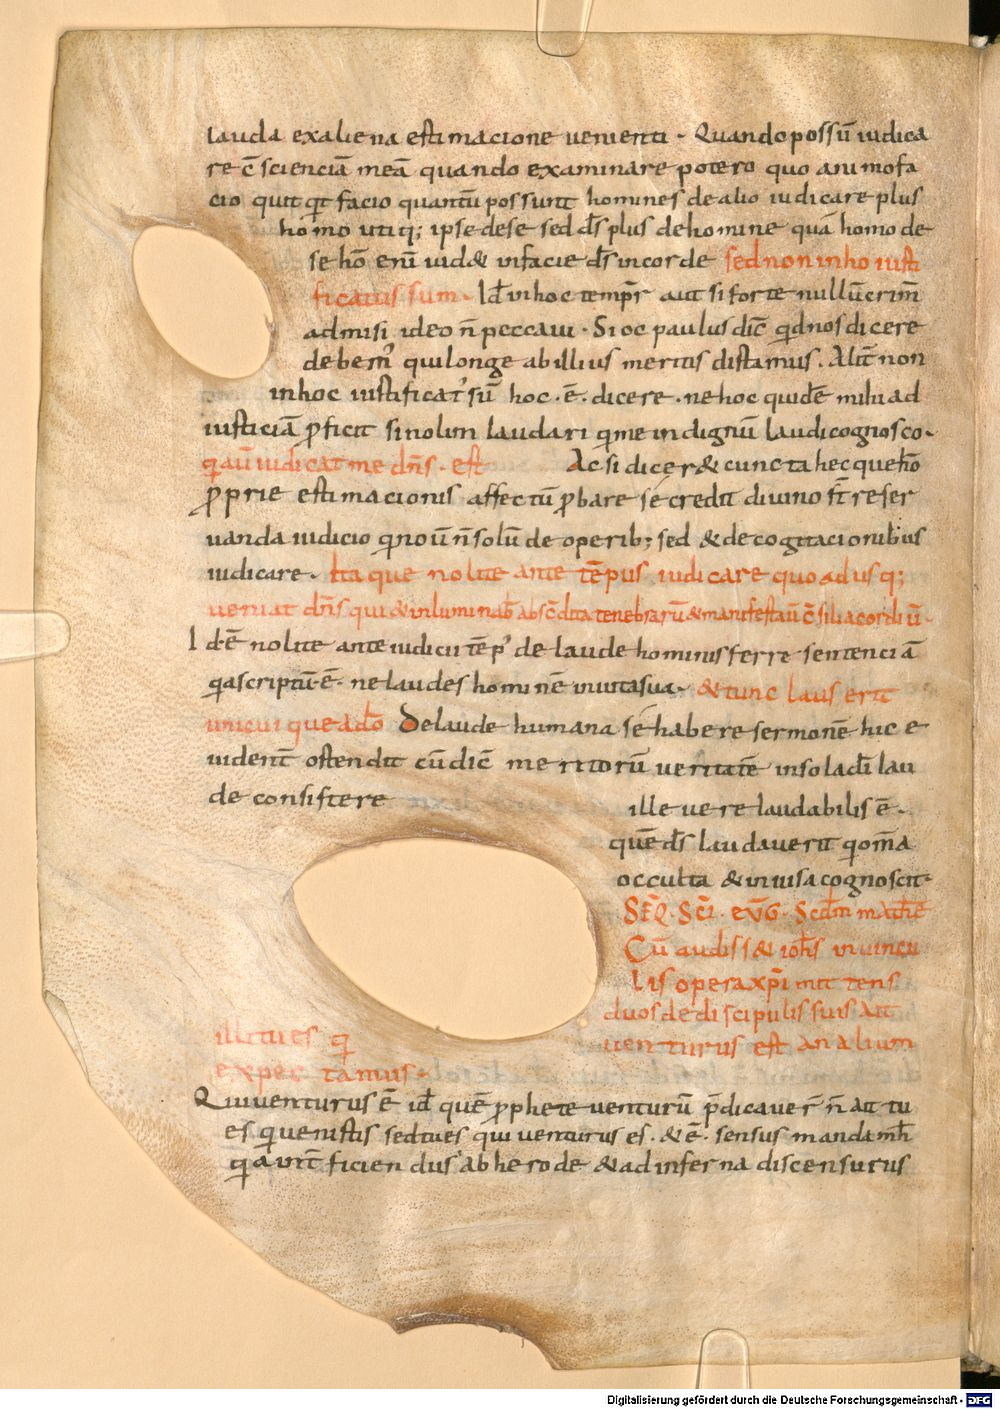 lauda exaliena estimacione uenienti · Quando possū iudica
re c̄scienciā meā quando examinare potero quo animo fa
cio quit qt̄ facio quantū possunt homines de alio iudicare plus
homo utiq; ipse de se sed ds̄ plus de homine quā homo de
se hō enī uid& in facie ds̄ in corde sed non in ho iusti
ficatus sum · Id̄ in hoc tempr̄ aut si forte nullū crim̄
admisi ideo n̄ peccaui · Si oc paulus dic̄ qd nos dicere
debem' qui longe ab illius meritis distamus . Alit̄ non
in hoc iustificat' sū hoc · ē · dicere · ne hoc quidē mihi ad
iusticiā proficit si nolim laudari qi me indignū laudi cognosco ·
qi aū iudicat me dn̄s · est Ac si dicer& cuncta hec que hō
proprie estimacionis affectū probare se credit diuino st̄ reser
uanda iudicio qi noū n̄ solū de operib; sed & de cogitacionibus
iudicare · Itaque nolite ante tēpus iudicare quoadusq;
ueniat dn̄s qui & inluminab̄ absc̄dita tenebrarū & manifestaū c̄silia cordiū ·
Id · ē nolite ante iudicii tēp' de laude hominis ferre sentenciā
qia scriptū · ē · ne laudes hominē in uita sua · & tunc laus erit
unicuique ad̄o De laude humana se habere sermonē hic e
uident̄ ostendit cū dic̄ meritorū ueritatē in sola dī lau
de consistere ille uere laudabilis ē ·
quē ds̄ laudauerit qi om̄a
occulta & inuisa cognoscit ·
SEQ̄ · SC̄I · EVḠ · Scdm̄ mathē
Cū audiss& ioh̄s in uincu
lis opera xp̄i mittens
duos de discipulis suis Ait
illi tu es qi uenturus est an alium
expectamus ·
Qui uenturus ē id̄ quē prophete uenturū p̄dicauer̄ n̄ ait tu
es qi uenistis sed tu es qui uenturus es · & ē · sensus manda mh̄
qia int̄ficiendus ab herode & ad inferna discensurus
Digitalisierung gefördert durch die Deutsche Forschungsgemeinschaft - DFG